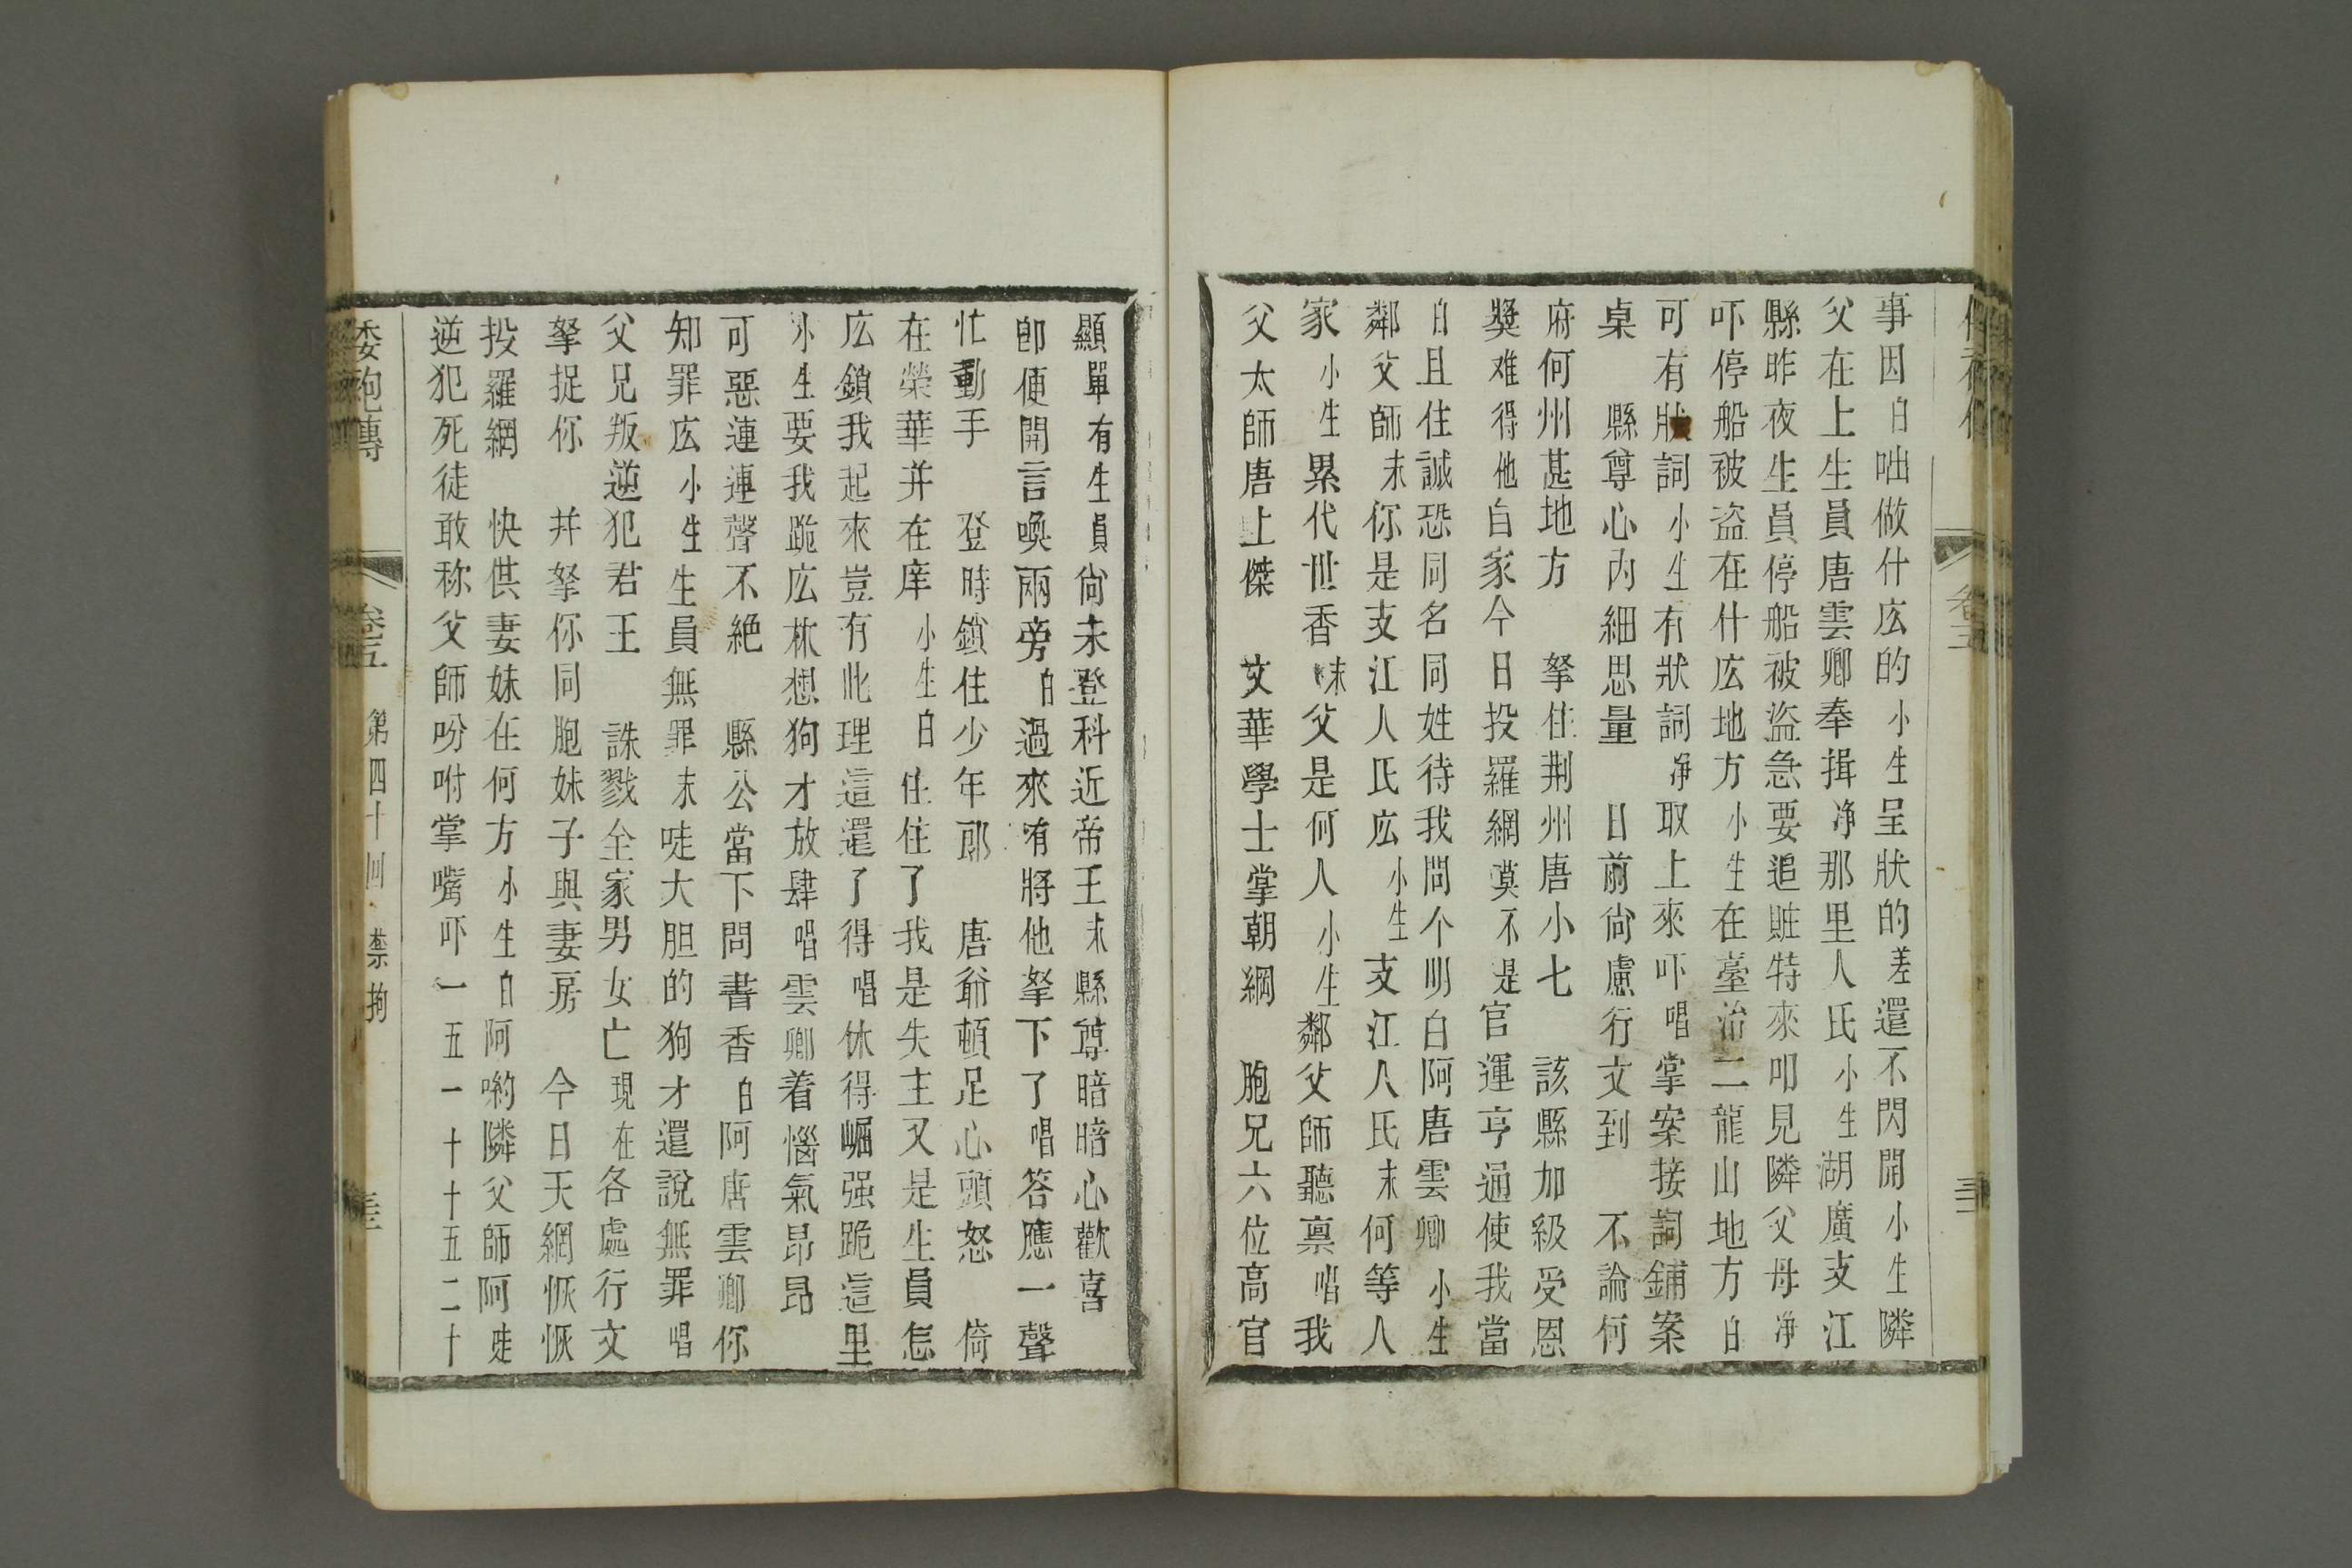 事因白咄做什広的小生呈狀的差還不閃開小生隣
父在上生員唐雲卿奉揖净那里人氏小生湖廣支江
縣昨夜生員停船被盗急要追賍特來叩見隣父母净
吓停船被盗在什広地方小生在臺治二龍山地方白
可有狀詞小生有狀詞净取上來吓唱掌案接詞鋪案
桌 縣尊心内細思量 日前尙慮行文到 不論何
府何州甚地方 拏住荆州唐小七 該縣加級受恩
奬难得他自家今日投羅網莫不是官運亨通使我當
白且住誠恐同名同姓待我問个明白阿唐雲卿小生
鄰父師末你是支江人氏広小生支江人氏末何等人
家小生累代世香末父是何人小生鄰父師聽禀唱我
父太師唐上傑 文華學士掌朝綱 胞兄六位高官
顯單有生員尙未登科近帝王末縣尊暗暗心歡喜
卽便開言喚兩旁白過來吩將他拏下了唱答應一聲
忙動手 登時鎖住少年郎 唐爺頓足心頭怒 倚
在榮華幷在庠小生白住住了我是失主又是生員怎
広鎖我起來豈有此理這還了得唱休得崛强跪這里
小生要我跪広休想狗才放肆唱雲卿着惱氣昂昂
可惡連連聲不絶 縣公當下問書香白阿唐雲卿你
知罪広小生生員無罪末唗大胆的狗才還說無罪唱
父兄叛逆犯君王 誅戮全家男女亡現在各處行文
拏捉你 幷拏你同胞妹子與妻房 今日天網恢恢
投羅網 快供妻妹在何方小生白阿喲隣父師阿唗
逆犯死徒敢称父師吩咐掌嘴吓一五一十十五二十
倭袍傳 卷五 第四十回 禁拘